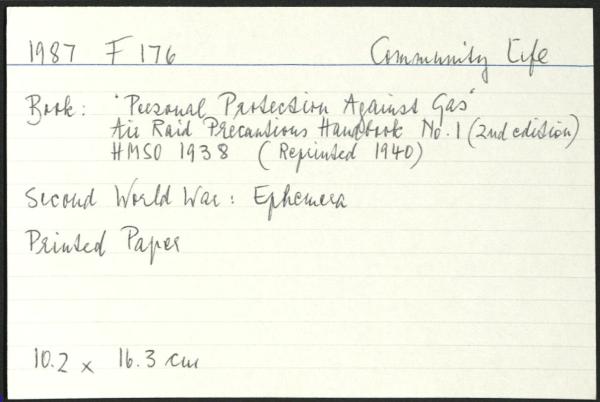 1987 F 176 Community Life
Book: 'Personal Protection Against Gas'
Air Raid Precautions Handbook No. 1 (2nd edition)
HMSO 1938 (Reprinted 1940)
Second World War: Ephemera
Printed Paper
10.2 x 16.3 cm